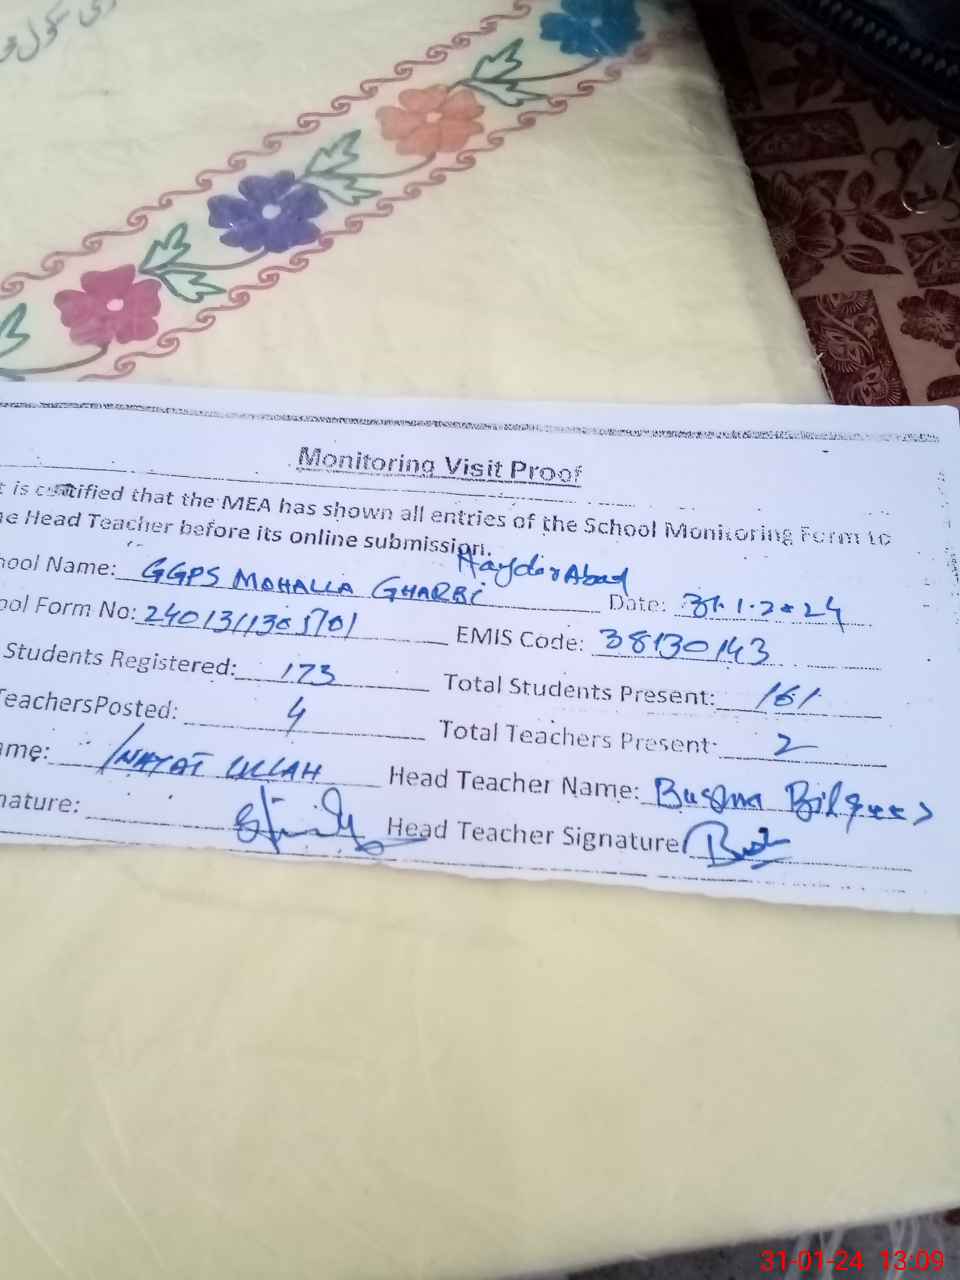 Monitoring Visit Proof
t is certified that the MEA has shown all entries of the School Monitoring Form to
he Head Teacher before its online submission.
hool Name: GGPS MOHALLA GHARBI Hayder Abad Date: 31.1.2024
ool Form No: 2401311305701 EMIS Code: 38130143
Students Registered: 173 Total Students Present: 161
TeachersPosted: 4 Total Teachers Present: 2
ame: INAYAT ULLAH Head Teacher Name: Bushra Bilqees
nature: Head Teacher Signature
31-01-24 13:09